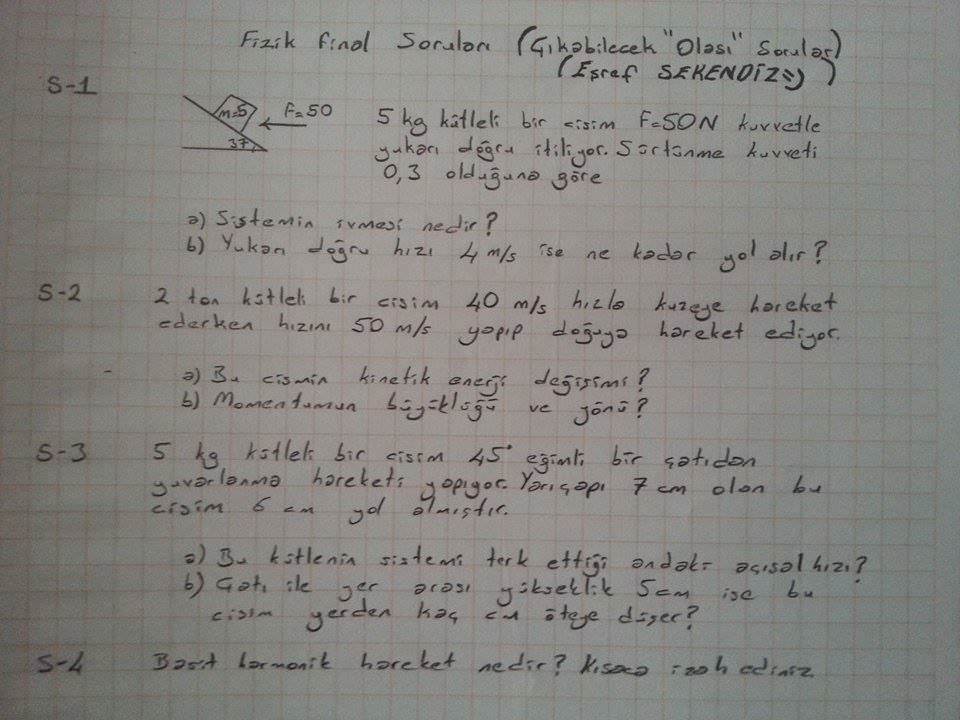 Fizik Final Soruları (Çıkabilecek "Olası" Sorular)
(Eşref SEKENDİZ=))
S-1
m=5
F=50
37
5 kg kütleli bir cisim F=50N kuvvetle
yukarı doğru itiliyor. Sürtünme kuvveti
0,3 olduğuna göre
a) Sistemin ivmesi nedir?
b) Yukarı doğru hızı 4 m/s ise ne kadar yol alır?
S-2 2 ton kütleli bir cisim 40 m/s hızla kuzeye hareket
ederken hızını 50 m/s yapıp doğuya hareket ediyor.
a) Bu cismin kinetik enerji değişimi?
b) Momentumun büyüklüğü ve yönü?
S-3 5 kg kütleli bir cisim 45° eğimli bir çatıdan
yuvarlanma hareketi yapıyor. Yarıçapı 7 cm olan bu
cisim 6 cm yol almıştır.
a) Bu kütlenin sistemi terk ettiği andaki açısal hızı?
b) Çatı ile yer arası yükseklik 5cm ise bu
cisim yerden kaç cm öteye düşer?
S-4 Basit harmonik hareket nedir? Kısaca izah ediniz